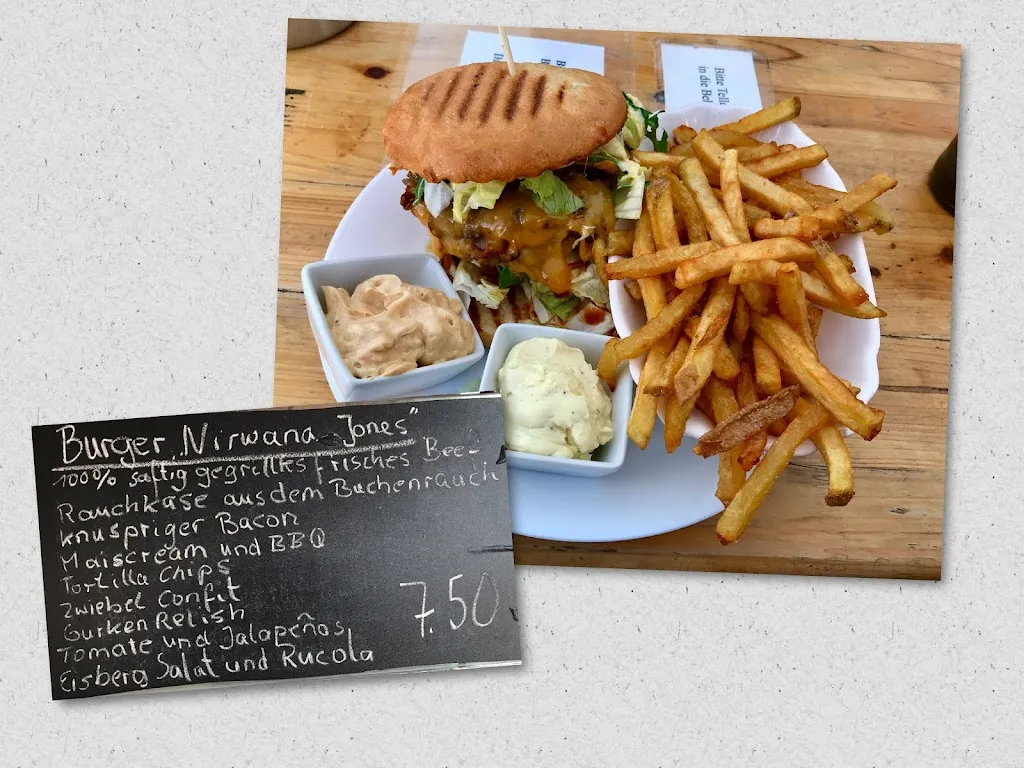 Burger „Nirwana Jones"
100% saftig gegrilltes frisches Bee-
Rauchkäse aus dem Buchenrauch
knuspriger Bacon
Maiscream und BBQ
Tortilla Chips
Zwiebel Confit
Gurken Relish
Tomate und Jalapeños
Eisberg Salat und Rucola
7.50
Bitte Telle
in die Bel